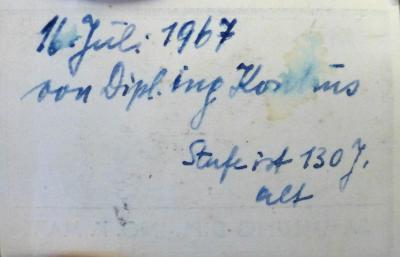 16. Juli 1967
von Dipl. ing.
Stufe ist 130 J.
alt